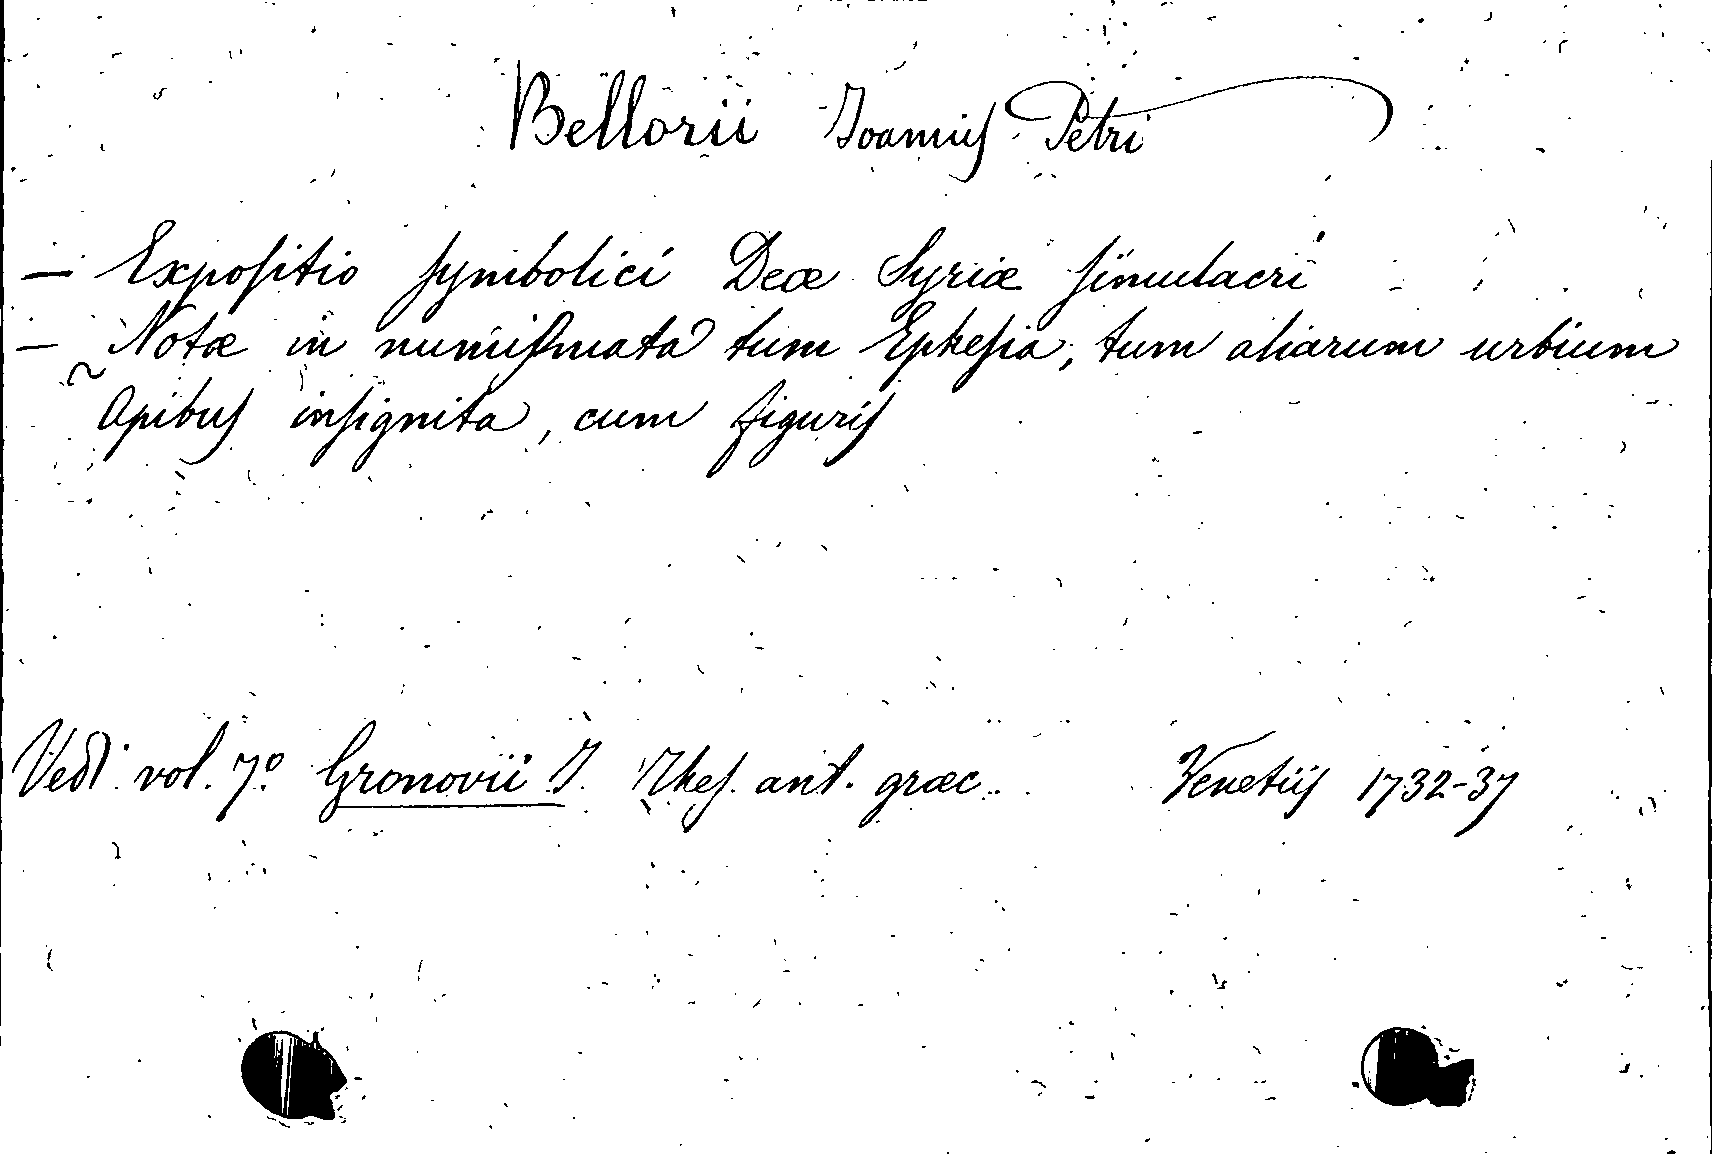 Bellorii Joannis Petri
— Expositio symbolici Deæ Syriæ simulacri
— Notæ in numismata tum Ephesia, tum aliarum urbium
Apibus insignita, cum figuris
Vedi vol. 7º Gronovii J. Thes. ant. græc. Venetiis 1732-37